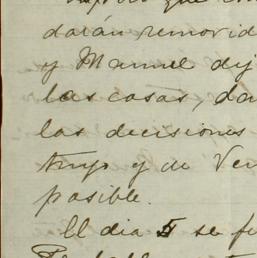 que
darán removid
y Manuel dij
las cosas, da
las decisiones
tmpo y de Ven
posible.
El dia 5 se fu